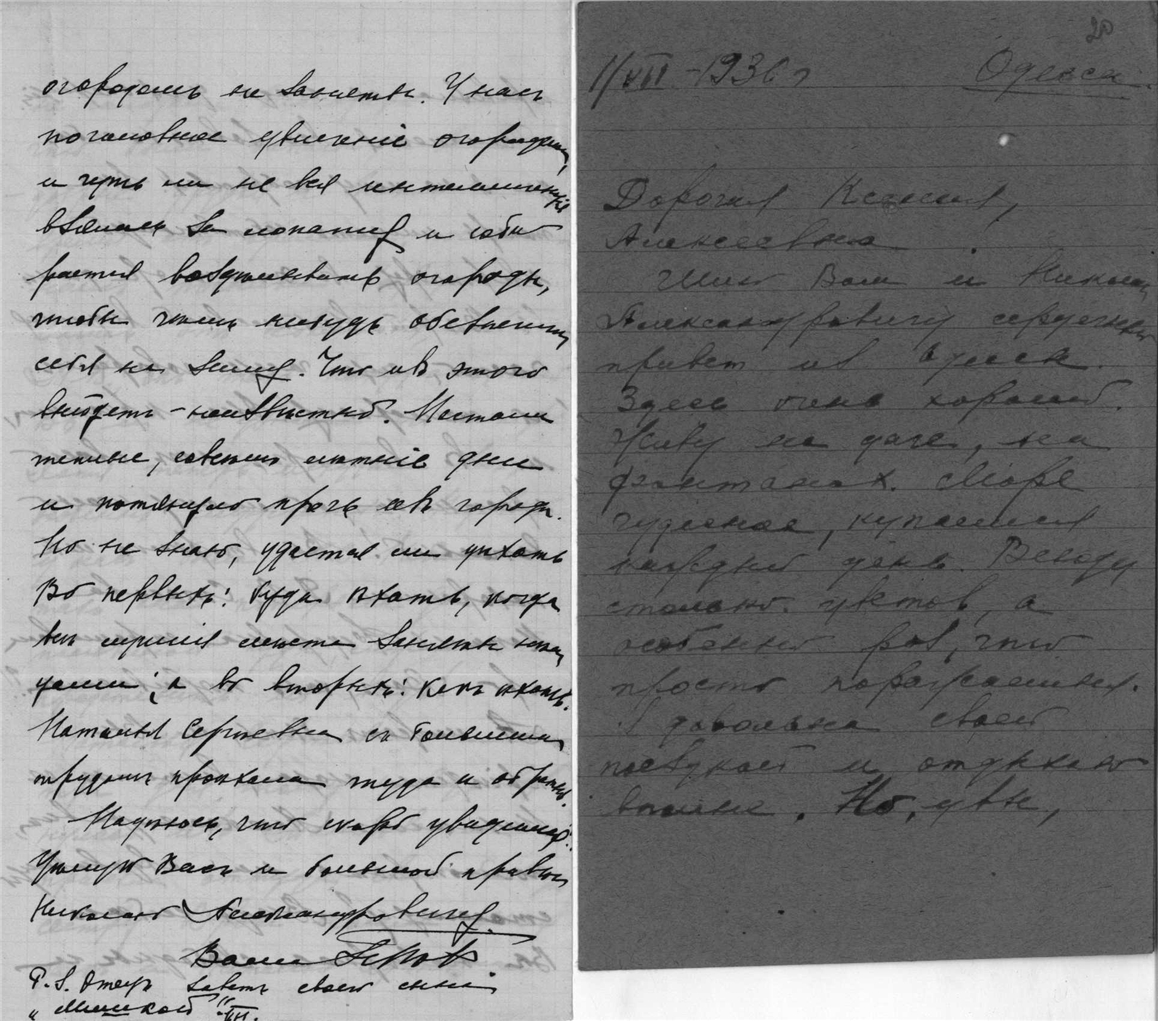 огородомъ не заняты. У насъ
поголовное увлеченіе огородами,
и чуть ли не вся интеллигенція
взялась за лопату и соби
рается воздѣлывать огороды,
чтобы чѣмъ нибудь обезпечить
себя на зиму. Что изъ этого
выйдетъ – неизвѣстно. Настали
теплые, совсѣмъ лѣтніе дни
и потянуло прочь изъ города.
Но не знаю, удастся ли уѣхать
Во первыхъ: куда ѣхать, когда
всѣ лучшія мѣста заняты
; а во вторыхъ: какъ ѣхать.
Наталья Сергѣевна съ большимъ
трудомъ проѣхала туда и обратно.
Надѣюсь, что скоро увидимся.
Цѣлую Васъ и большой привѣтъ
Николаю Александровичу.
Ваша
P.S. Отецъ зоветъ своего сына
„Мишкой"
20
11/VII – 1936 г Одесса.
Дорогая Ксения,
Алексеевна
Шлю Вам и Николаю
Александровичу сердечный
привет из Одессы.
Здесь очень хорошо.
Живу на даче, на
фонтанах. Море
чудесное, купаемся
каждый день. Всюду
столько цветов, а
особенно роз, что
просто поражаешься.
Я довольна своей
поездкой и отдыхаю
вполне. Но, увы,